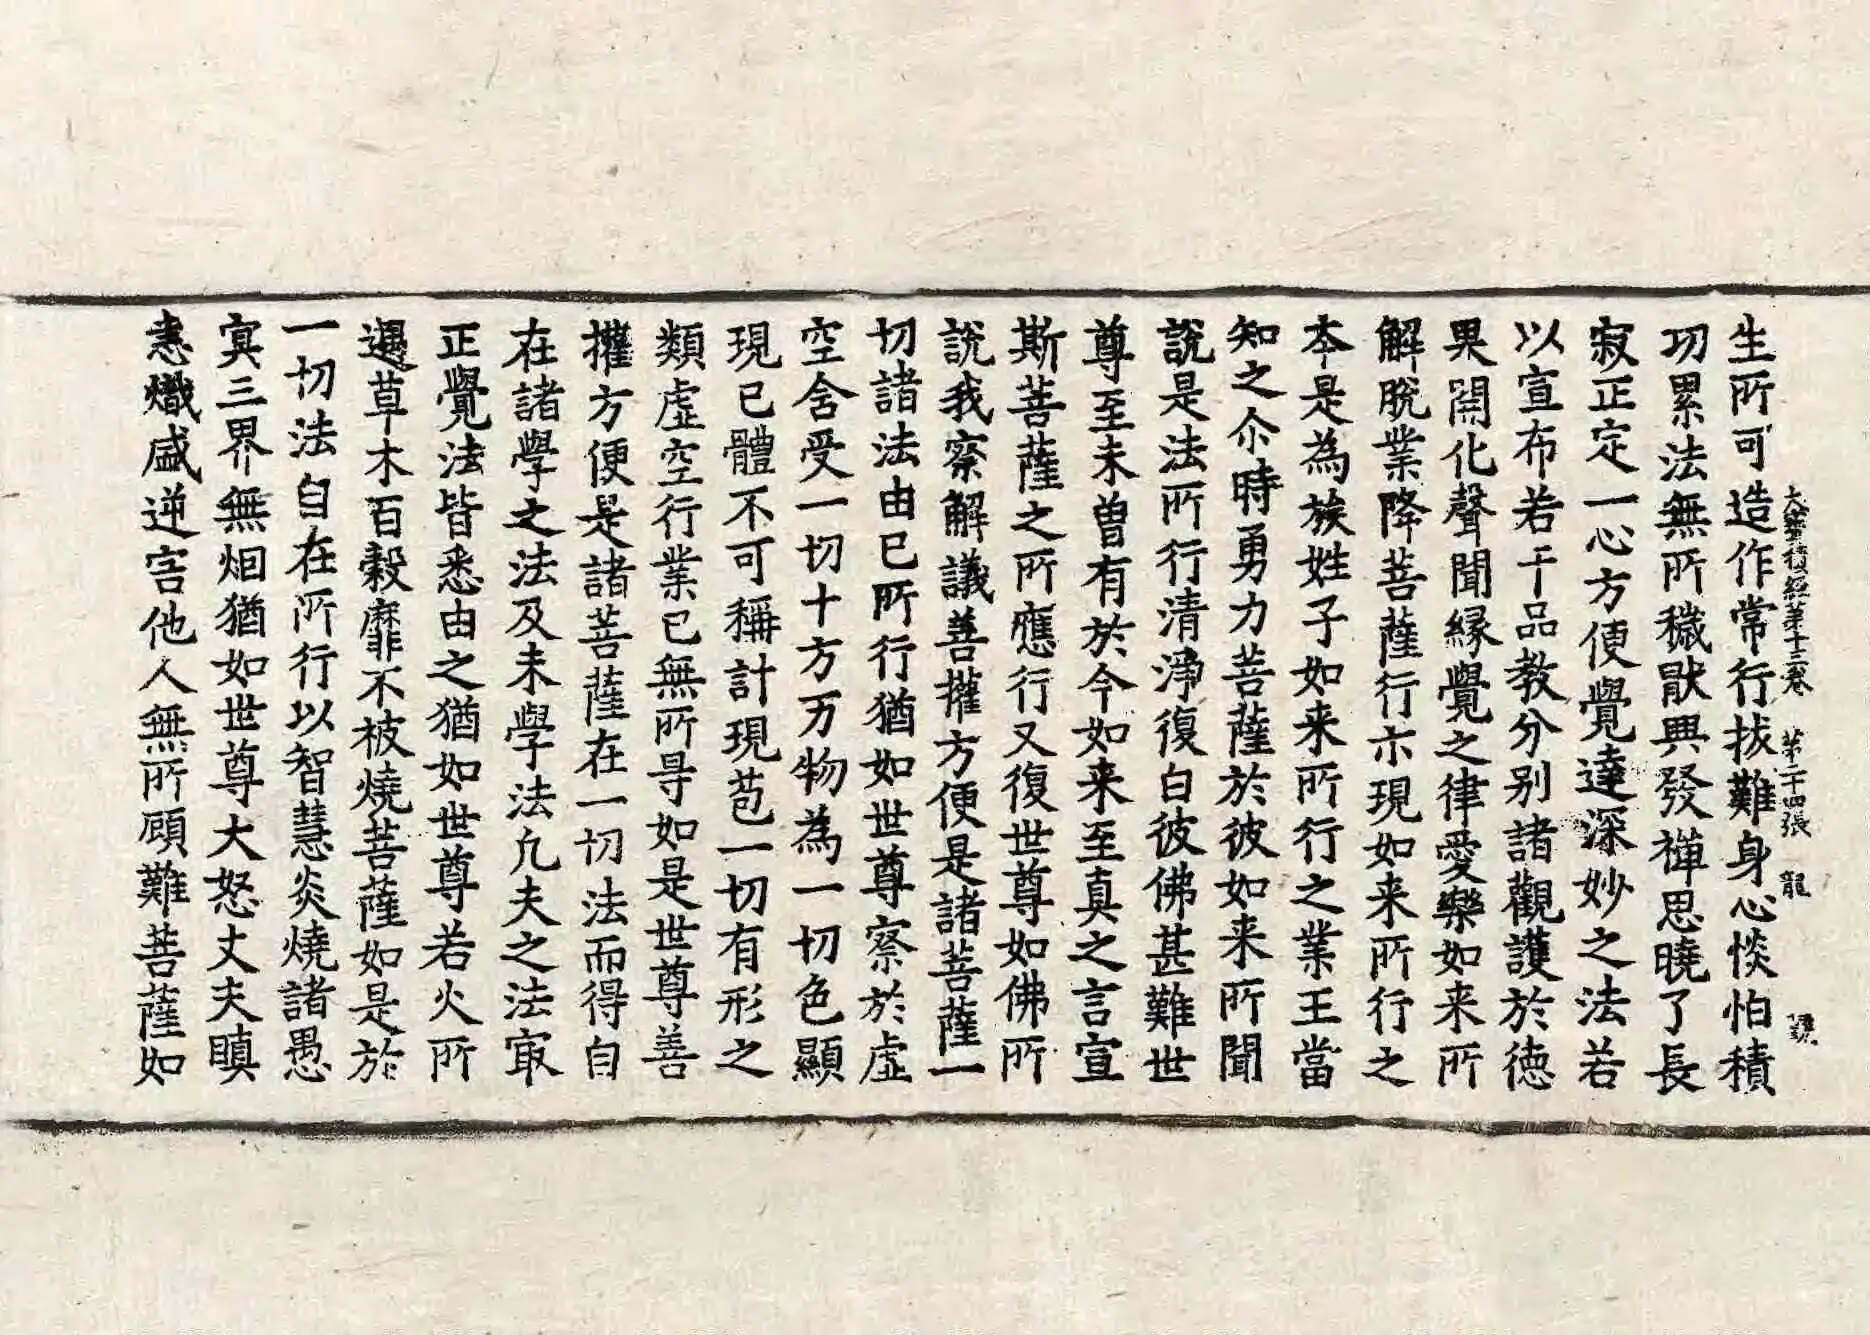 大寶積經第十三卷 第二十四張 龍
生所可造作常行拔難身心惔怕積
功累法無所穢猒興發禪思曉了長
寂正定一心方便覺達深妙之法若
以宣布若干品教分別諸觀護於德
果開化聲聞緣覺之律愛樂如来所
解脫業降菩薩行示現如来所行之
本是為族姓子如来所行之業王當
知之尒時勇力菩薩於彼如来所聞
說是法所行清淨復白彼佛甚難世
尊至未曾有於今如来至真之言宣
斯菩薩之所應行又復世尊如佛所
說我察解議善攉方便是諸菩薩一
切諸法由已所行猶如世尊察於虛
空舍受一切十方万物為一切色顯
現已體不可稱計現苞一切有形之
類虛空行業已無所㝵如是世尊善
攉方便是諸菩薩在一切法而得自
在諸學之法及未學法凢夫之法㝡
正覺法皆悉由之猶如世尊若火所
遇草木百穀靡不被燒菩薩如是於
一切法自在所行以智慧炎燒諸愚
冥三界無烟猶如世尊大怒丈夫瞋
恚熾盛逆害他人無所顧難菩薩如